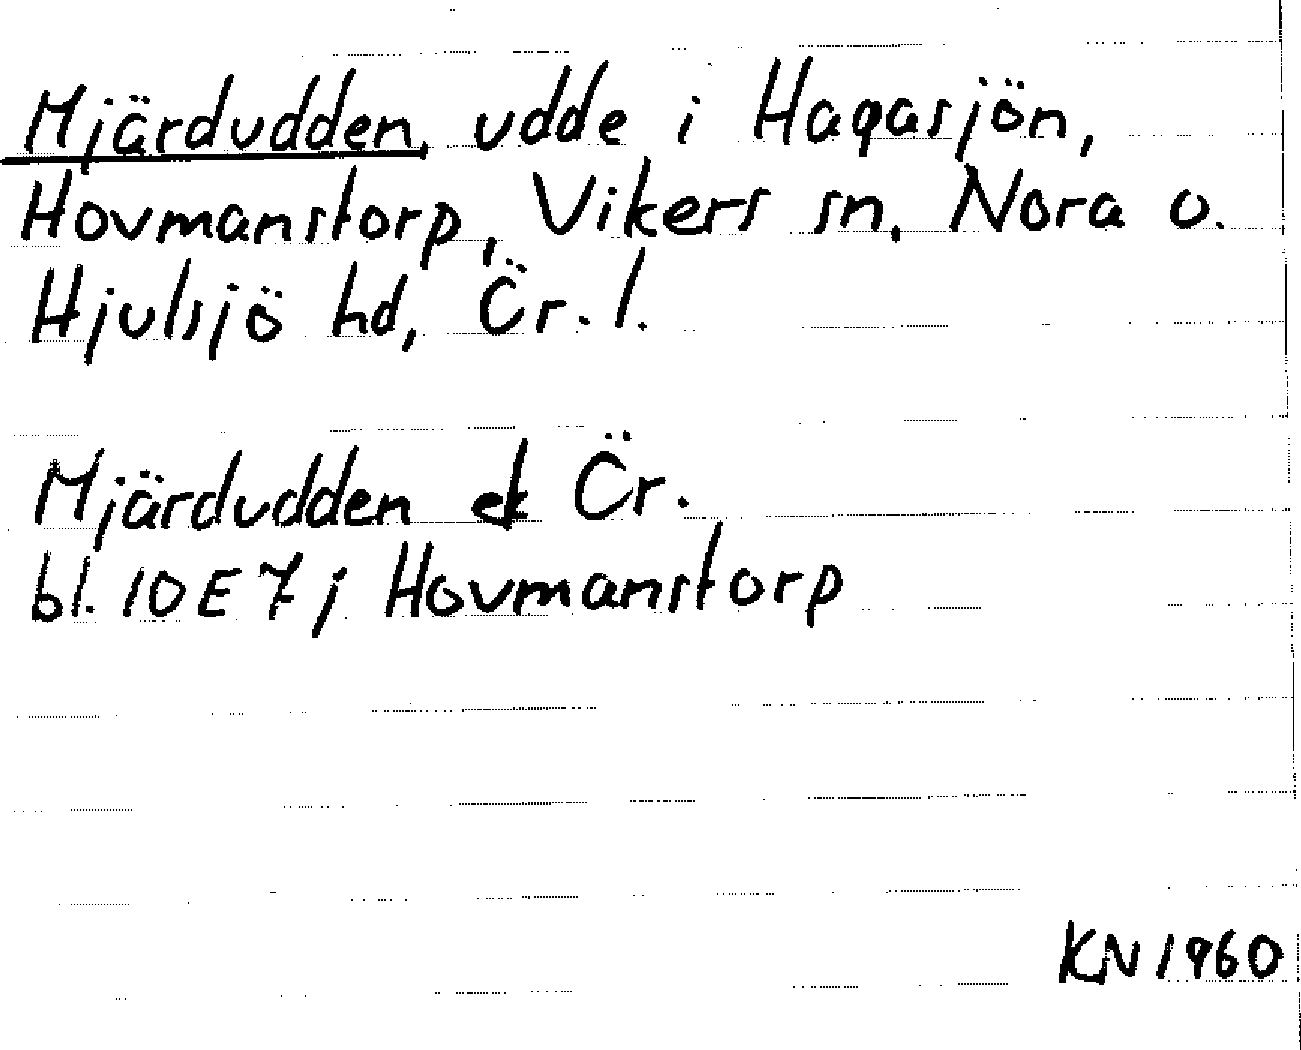 Mjärdudden, udde i Hagasjön,
Hovmanstorp, Vikers sn, Nora o.
Hjulsjö hd, Ör. l.
Mjärdudden ek Ör.
bl. 10E7j Hovmanstorp
KN 1960